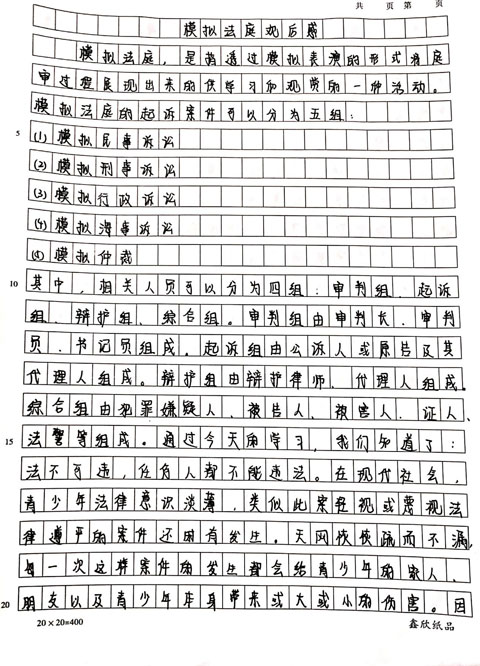 共 页 第 页
模拟法庭观后感
模拟法庭，是指透过模拟表演的形式将庭
审过程展现出来的供学习和观赏的一种活动。
模拟法庭的起诉案件可以分为五组：
5
(1) 模拟民事诉讼
(2) 模拟刑事诉讼
(3) 模拟行政诉讼
(4) 模拟海事诉讼
模拟仲裁
10 其中，相关人员可以分为四组：审判组、起诉
组、辩护组、综合组。审判组由审判长、审判
员、书记员组成。起诉组由公诉人或原告及其
代理人组成。辩护组由辩护律师、代理人组成。
综合组由犯罪嫌疑人、被告人、被害人、证人、
15 法警等组成。通过今天的学习，我们知道了：
法不可违，任何人都不能违法。在现代社会，
青少年法律意识淡薄，类似此案轻视或蔑视法
律遵严的案件还时有发生。天网恢恢疏而不漏，
每一次这样案件的发生都会给青少年的家人、
20 朋友以及青少年本身带来或大或小的伤害。因
20×20=400 鑫欣纸品